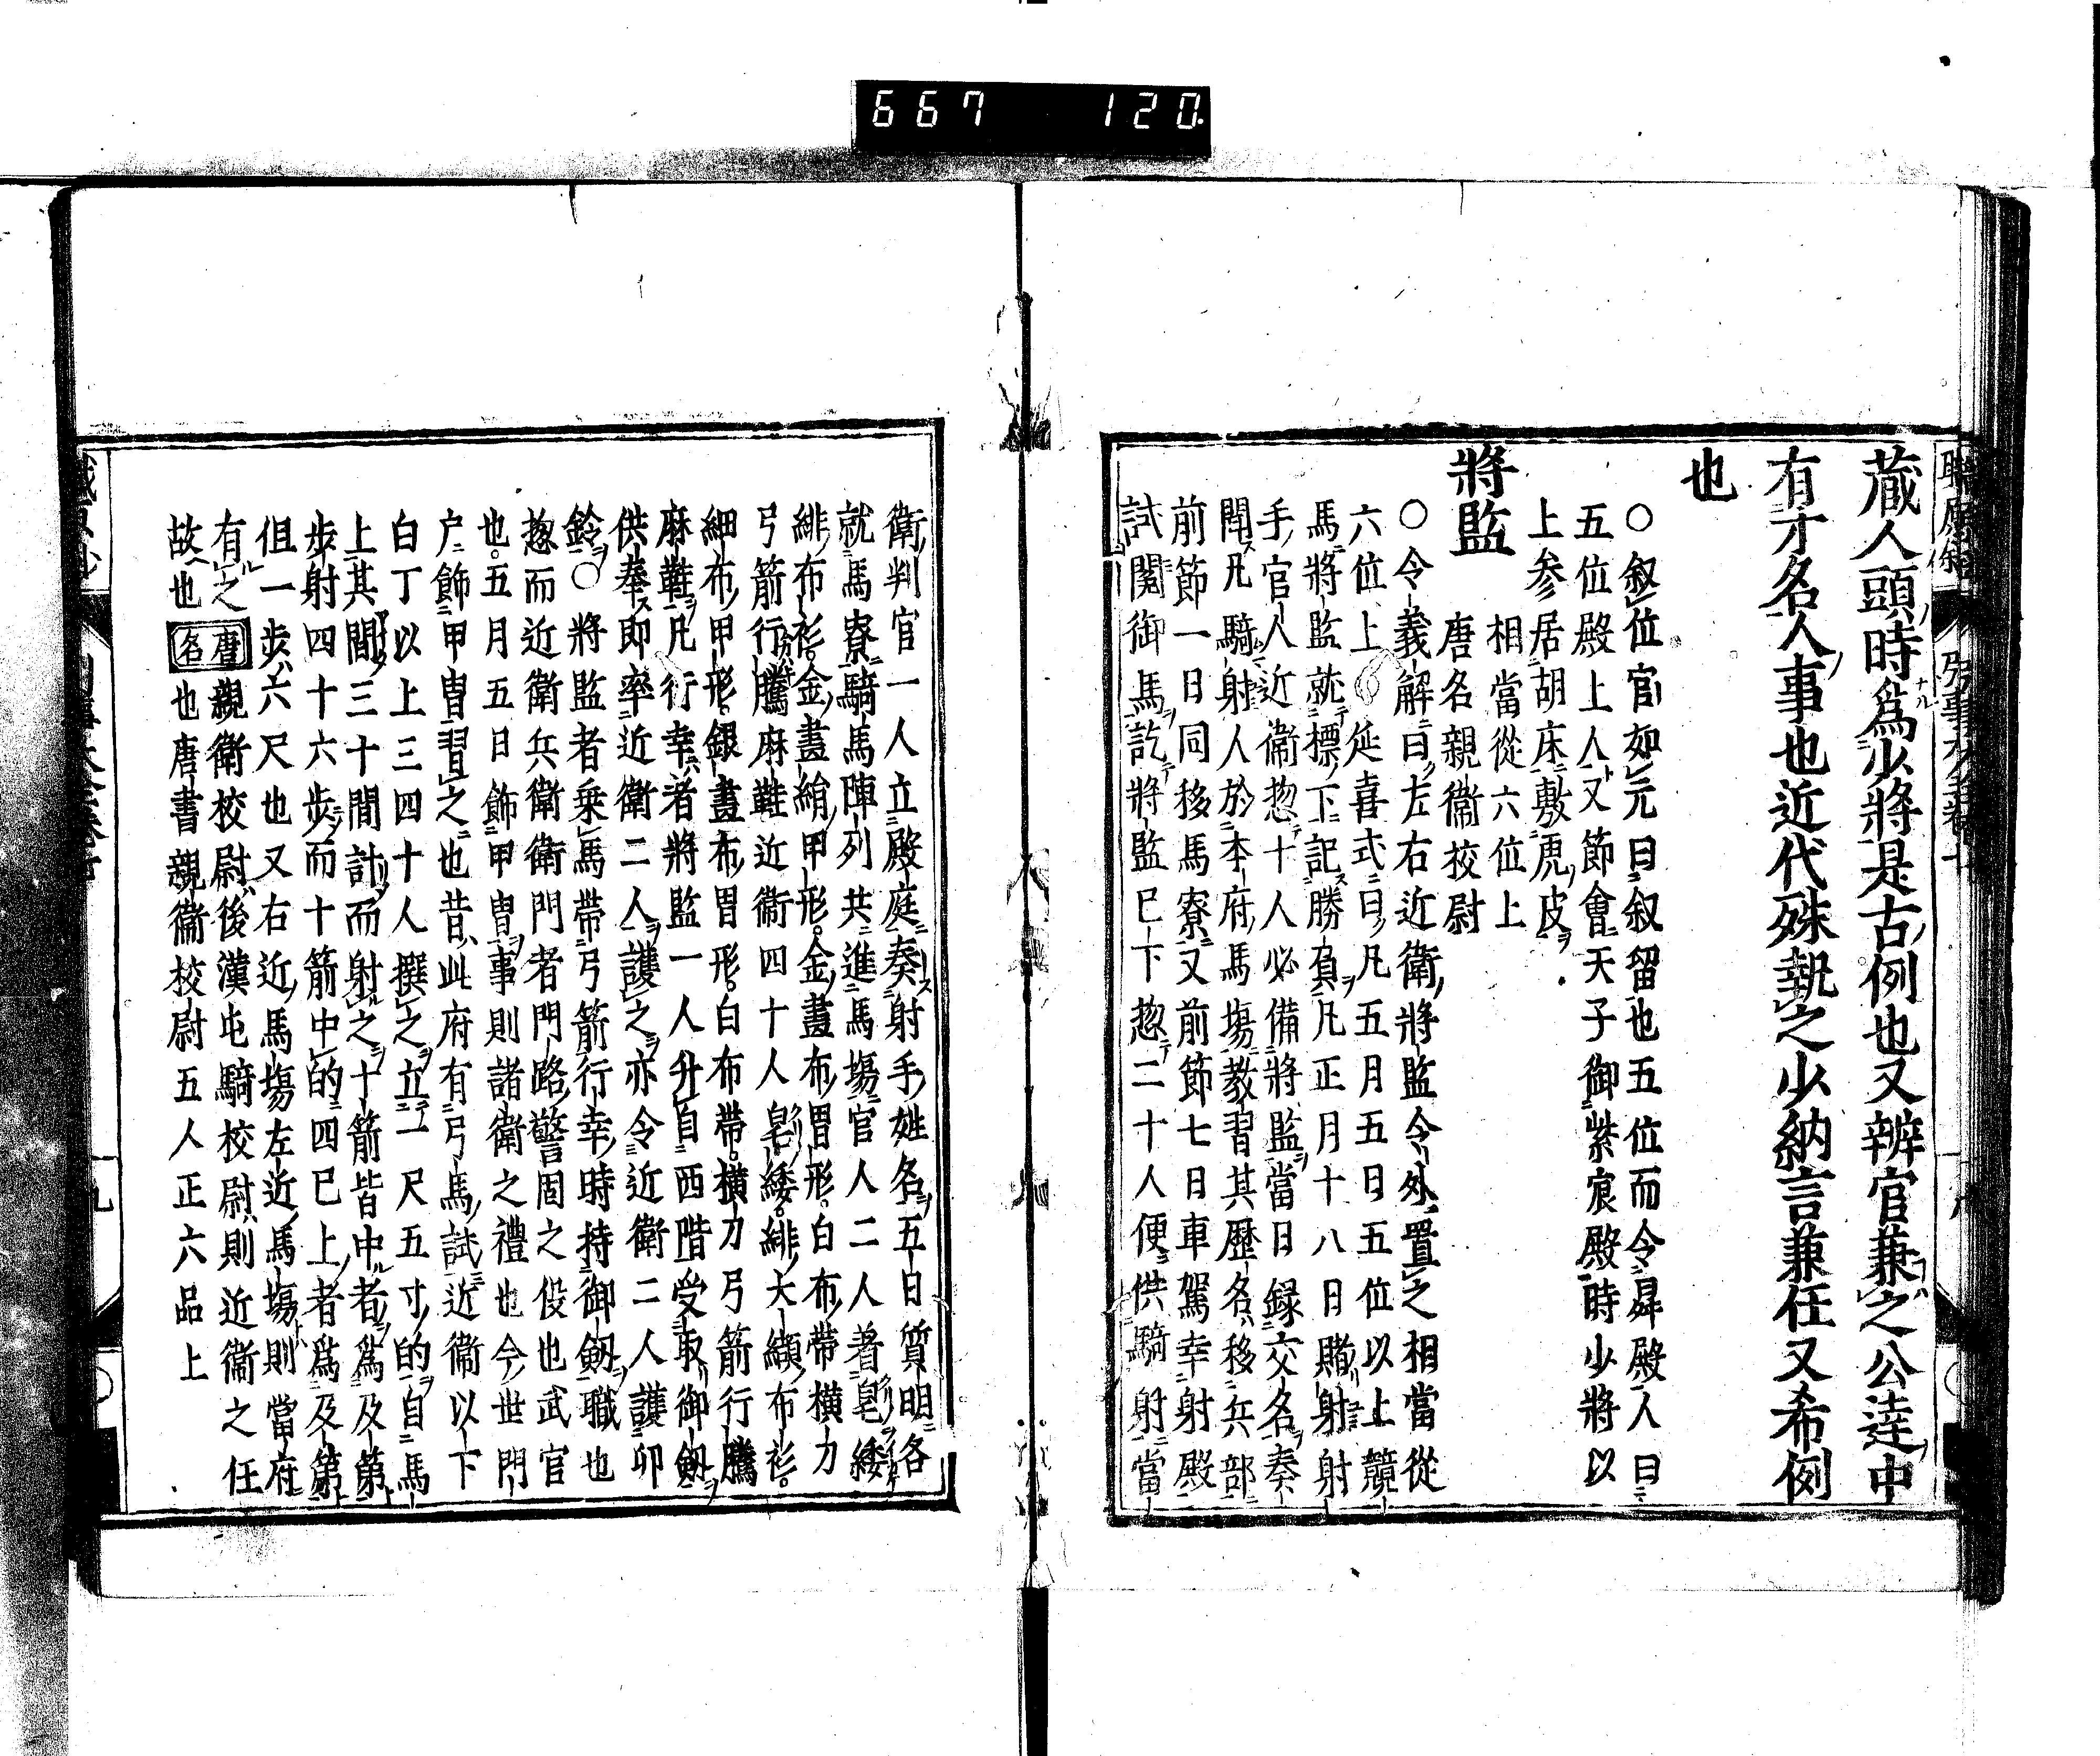 667 120
蔵人頭時爲少將是古例也又辨官兼之公達中
有才名人事也近代殊執之少納言兼任又希例
也
○叙位官如元曰叙留也五位而令昇殿人曰
五位殿上人又節會天子御紫宸殿時少將以
上参居胡床敷虎皮
將監
相當從六位上
唐名親衞校尉
○令義解曰左右近衛將監令外置之相當從
六位上 延喜式曰凡五月五日五位以上競
馬將監就標下記勝負凡正月十八日賭射射
手官人近衞惣十人必備將監當日録交名奏
聞凡騎射人於本府馬塲教習其歴名移兵部
前節一日同移馬寮又前節七日車駕幸射殿
試閲御馬訖將監已下惣二十人便供騎射當
衛判官一人立殿庭奏射手姓名五日質明各
就馬寮騎馬陣列共進馬塲官人二人著皂緌
緋布衫金畫絹甲形金畫布冑形白布帶横刀
弓箭行騰麻鞋近衞四十人皂緌緋大纈布衫
細布甲形銀畫布冑形白布帶横刀弓箭行騰
麻鞋凡行幸者將監一人升自西階受取御劔
供奉即率近衛二人護之亦令近衛二人護印
鈴○將監者乗馬帶弓箭行幸時持御劔職也
惣而近衛兵衛衛門者門路警固之役也武官
也五月五日飾甲冑事則諸衛之禮也今世門
户飾甲冑習之也昔此府有弓馬試近衞以下
白丁以上三四十人撰之立一尺五寸的自馬
上其間三十間計而射之十箭皆中者爲及第
步射四十六步而十箭中的四已上者爲及第
但一步六尺也又右近馬塲左近馬塲則當府
有之 唐名 親衛校尉後漢屯騎校尉則近衞之任
故也 也唐書親衞校尉五人正六品上